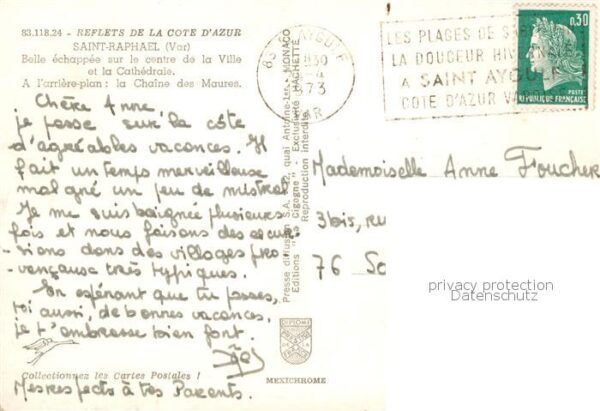 83.118.24 - REFLETS DE LA COTE D'AZUR
SAINT-RAPHAEL (Var)
Belle échappée sur le centre de la Ville
et la Cathédrale.
A l'arrière-plan : la Chaîne des Maures.
Chère Anne
je passe sur la côte
d'agréables vacances. Il
fait un temps merveilleux
malgré un peu de mistral
Je me suis baignée plusieurs
fois et nous faisons des excur
sions dans des villages pro
vençaux très typiques.
En espérant que tu passes,
toi aussi, de bonnes vacances,
je t'embrasse bien fort.
Collectionnez les Cartes Postales !
Mes respects à tes Parents.
Presse diffusion S.A. quai Antoine-1er - MONACO
Editions "La Cigogne" - Exclusivité HACHETTE
Reproduction Interdite
DIPLOME
PRESTIGE
DE LA
FRANCE
MEXICHROME
83 ST AYGULF
1973
VAR
LES PLAGES DE
LA DOUCEUR
A SAINT AYGULF
COTE D'AZUR VAR
0,30
POSTES
REPUBLIQUE FRANÇAISE
Mademoiselle Anne Foucher
3bis, ru
76 So
privacy protection
Datenschutz